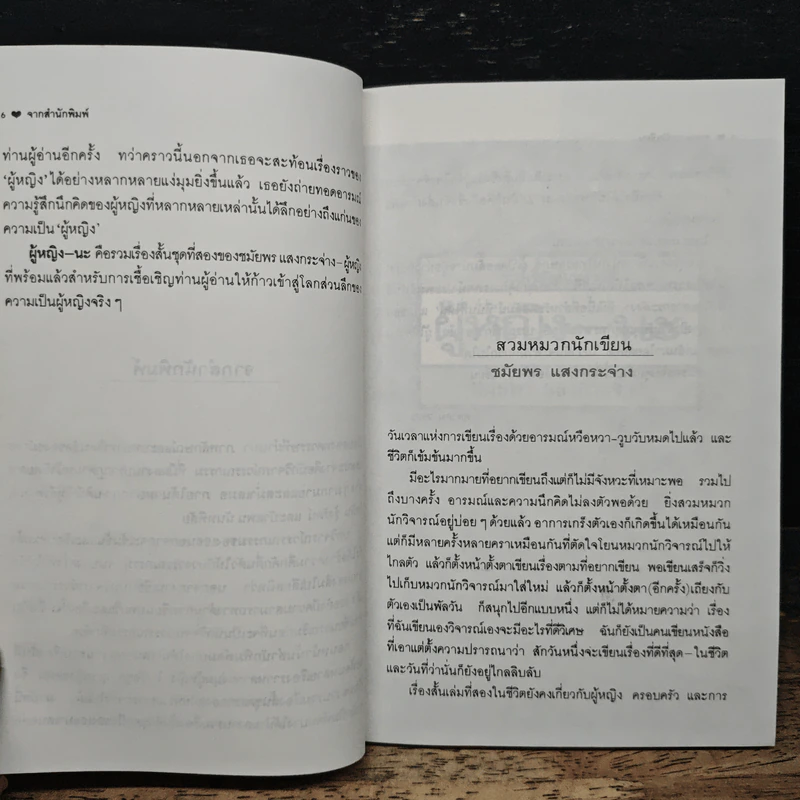 6 ❤ จากสำนักพิมพ์
ท่านผู้อ่านอีกครั้ง ทว่าคราวนี้นอกจากเธอจะสะท้อนเรื่องราวของ
‘ผู้หญิง’ ได้อย่างหลากหลายแง่มุมยิ่งขึ้นแล้ว เธอยังถ่ายทอดอารมณ์
ความรู้สึกนึกคิดของผู้หญิงที่หลากหลายเหล่านั้นได้ลึกอย่างถึงแก่นของ
ความเป็น ‘ผู้หญิง’
ผู้หญิง–นะ คือรวมเรื่องสั้นชุดที่สองของชมัยพร แสงกระจ่าง–ผู้หญิง
ที่พร้อมแล้วสำหรับการเชื้อเชิญท่านผู้อ่านให้ก้าวเข้าสู่โลกส่วนลึกของ
ความเป็นผู้หญิงจริง ๆ
สวมหมวกนักเขียน
ชมัยพร แสงกระจ่าง
วันเวลาแห่งการเขียนเรื่องด้วยอารมณ์หวือหวา-วูบวับหมดไปแล้ว และ
ชีวิตก็เข้มข้นมากขึ้น
มีอะไรมากมายที่อยากเขียนถึงแต่ก็ไม่มีจังหวะที่เหมาะพอ รวมไป
ถึงบางครั้ง อารมณ์และความนึกคิดไม่ลงตัวพอด้วย ยิ่งสวมหมวก
นักวิจารณ์อยู่บ่อย ๆ ด้วยแล้ว อาการเกร็งตัวเองก็เกิดขึ้นได้เหมือนกัน
แต่ก็มีหลายครั้งหลายคราเหมือนกันที่ตัดใจโยนหมวกนักวิจารณ์ไปให้
ไกลตัว แล้วก็ตั้งหน้าตั้งตาเขียนเรื่องตามที่อยากเขียน พอเขียนเสร็จก็วิ่ง
ไปเก็บหมวกนักวิจารณ์มาใส่ใหม่ แล้วก็ตั้งหน้าตั้งตา(อีกครั้ง)เถียงกับ
ตัวเองเป็นพัลวัน ก็สนุกไปอีกแบบหนึ่ง แต่ก็ไม่ได้หมายความว่า เรื่อง
ที่ฉันเขียนเองวิจารณ์เองจะมีอะไรที่ดีวิเศษ ฉันก็ยังเป็นคนเขียนหนังสือ
ที่เอาแต่ตั้งความปรารถนาว่า สักวันหนึ่งจะเขียนเรื่องที่ดีที่สุด-ในชีวิต
และวันที่ว่านั่นก็ยังอยู่ไกลลิบลับ
เรื่องสั้นเล่มที่สองในชีวิตยังคงเกี่ยวกับผู้หญิง ครอบครัว และการ